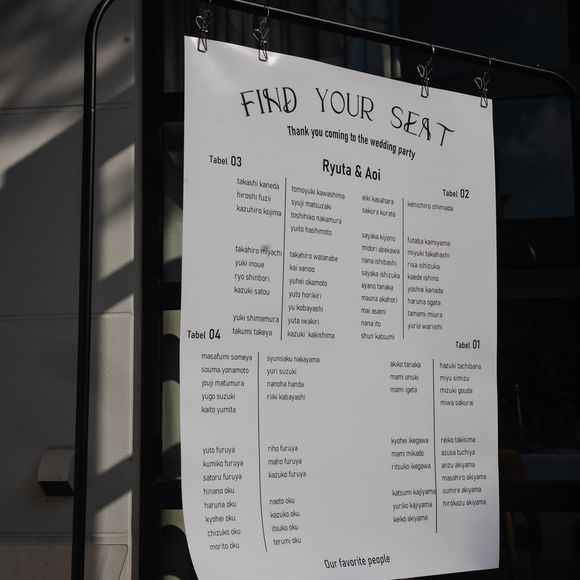 FIND YOUR SEAT
Thank you coming to the wedding party
Ryuta & Aoi
Tabel 03
takashi kaneda
hiroshi fuzii
kazuhiro kojima
takahiro miyachi
yuki inoue
ryo shinbori
kazuki satou
yuki shimamura
takumi takeya
tomoyuki kawashima
syuji matsuzaki
toshihiko nakamura
yuito hashimoto
takahiro watanabe
kai senoo
yuhei okamoto
yuto horikiri
yu kobayashi
yuta iwakiri
kazuki kakishima
Tabel 02
eiki kasahara
sakura kurata
sayaka kiyono
midori abekawa
nana ishibashi
sayaka ishizuka
ayano tanaka
mauna akahori
mai asami
nana ito
shun katsumi
kenichiro shimada
futaba kamiyama
miyuki takahashi
risa ishizuka
kaede ishino
yoshie kanada
haruna ogata
tamami miura
yuria wariishi
Tabel 04
masafumi someya
souma yonamoto
jouji matumura
yugo suzuki
kaito yumita
yuto furuya
kumiko furuya
satoru furuya
hinano oku
haruna oku
kyohei oku
chizuko oku
morito oku
syunsaku nakayama
yuri suzuki
nanoha handa
riiki kabayashi
riho furuya
maho furuya
kazuko furuya
naoto oku
kazuko oku
itsuko oku
terumi oku
Tabel 01
akiko tanaka
mami onuki
mami igeta
kyohei ikegawa
mami mikado
ritsuko ikegawa
katsumi kajiyama
yuriko kajiyama
keiko akiyama
hazuki tachibana
miyu simizu
mizuki gouda
miwa sakurai
reiko takisima
azusa tuchiya
anzu akiyama
masahiro akiyama
sumire akiyama
hirokazu akiyama
Our favorite people